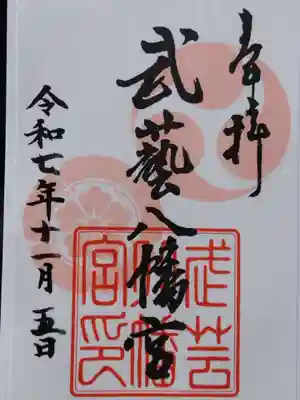 奉拝
武藝八幡宮
令和七年十一月五日
武芸八幡宮印